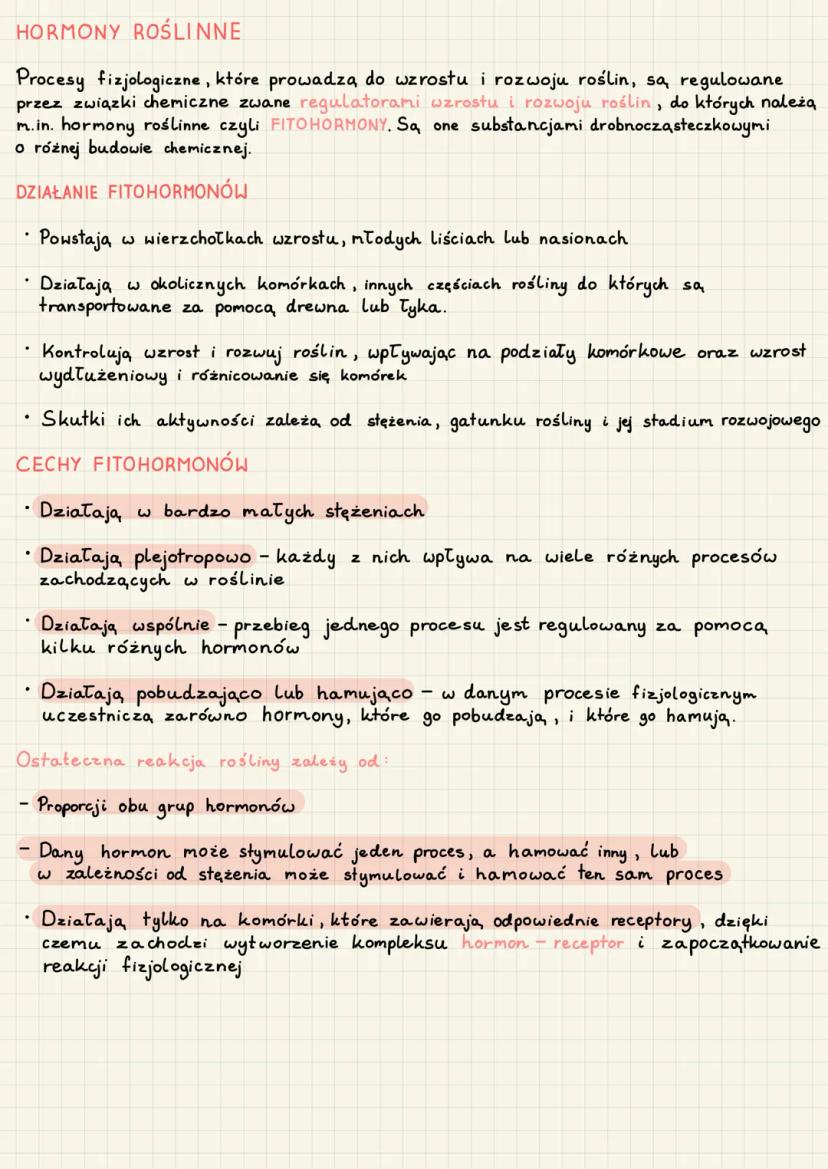 HORMONY ROŚLINNE
Procesy fizjologiczne, które prowadzą do wzrostu i rozwoju roślin, są regulowane
przez związki chemiczne zwane regulatorami wzrostu i rozwoju roślin, do których należą
m.in. hormony roślinne czyli FITOHORMONY. Są one substancjami drobnocząsteczkowymi
o różnej budowie chemicznej.
DZIAŁANIE FITOHORMONÓW
· Powstają w wierzchołkach wzrostu, młodych liściach lub nasionach
· Działają w okolicznych komórkach, innych częściach rośliny do których są
transportowane za pomocą drewna lub łyka.
· Kontrolują wzrost i rozwuj roślin, wpływając na podziały komórkowe oraz wzrost
wydłużeniowy i różnicowanie się komórek
· Skutki ich aktywności zależą od stężenia, gatunku rośliny i jej stadium rozwojowego
CECHY FITOHORMONÓW
· Działają w bardzo małych stężeniach
· Działają plejotropowo – każdy z nich wpływa na wiele różnych procesów
zachodzących w roślinie
· Działają wspólnie – przebieg jednego procesu jest regulowany za pomocą
kilku różnych hormonów
· Działają pobudzająco lub hamująco – w danym procesie fizjologicznym
uczestniczą zarówno hormony, które go pobudzają, i które go hamują.
Ostateczna reakcja rośliny zależy od:
– Proporcji obu grup hormonów
– Dany hormon może stymulować jeden proces, a hamować inny, lub
w zależności od stężenia może stymulować i hamować ten sam proces
· Działają tylko na komórki, które zawierają odpowiednie receptory, dzięki
czemu zachodzi wytworzenie kompleksu hormon – receptor i zapoczątkowanie
reakcji fizjologicznej